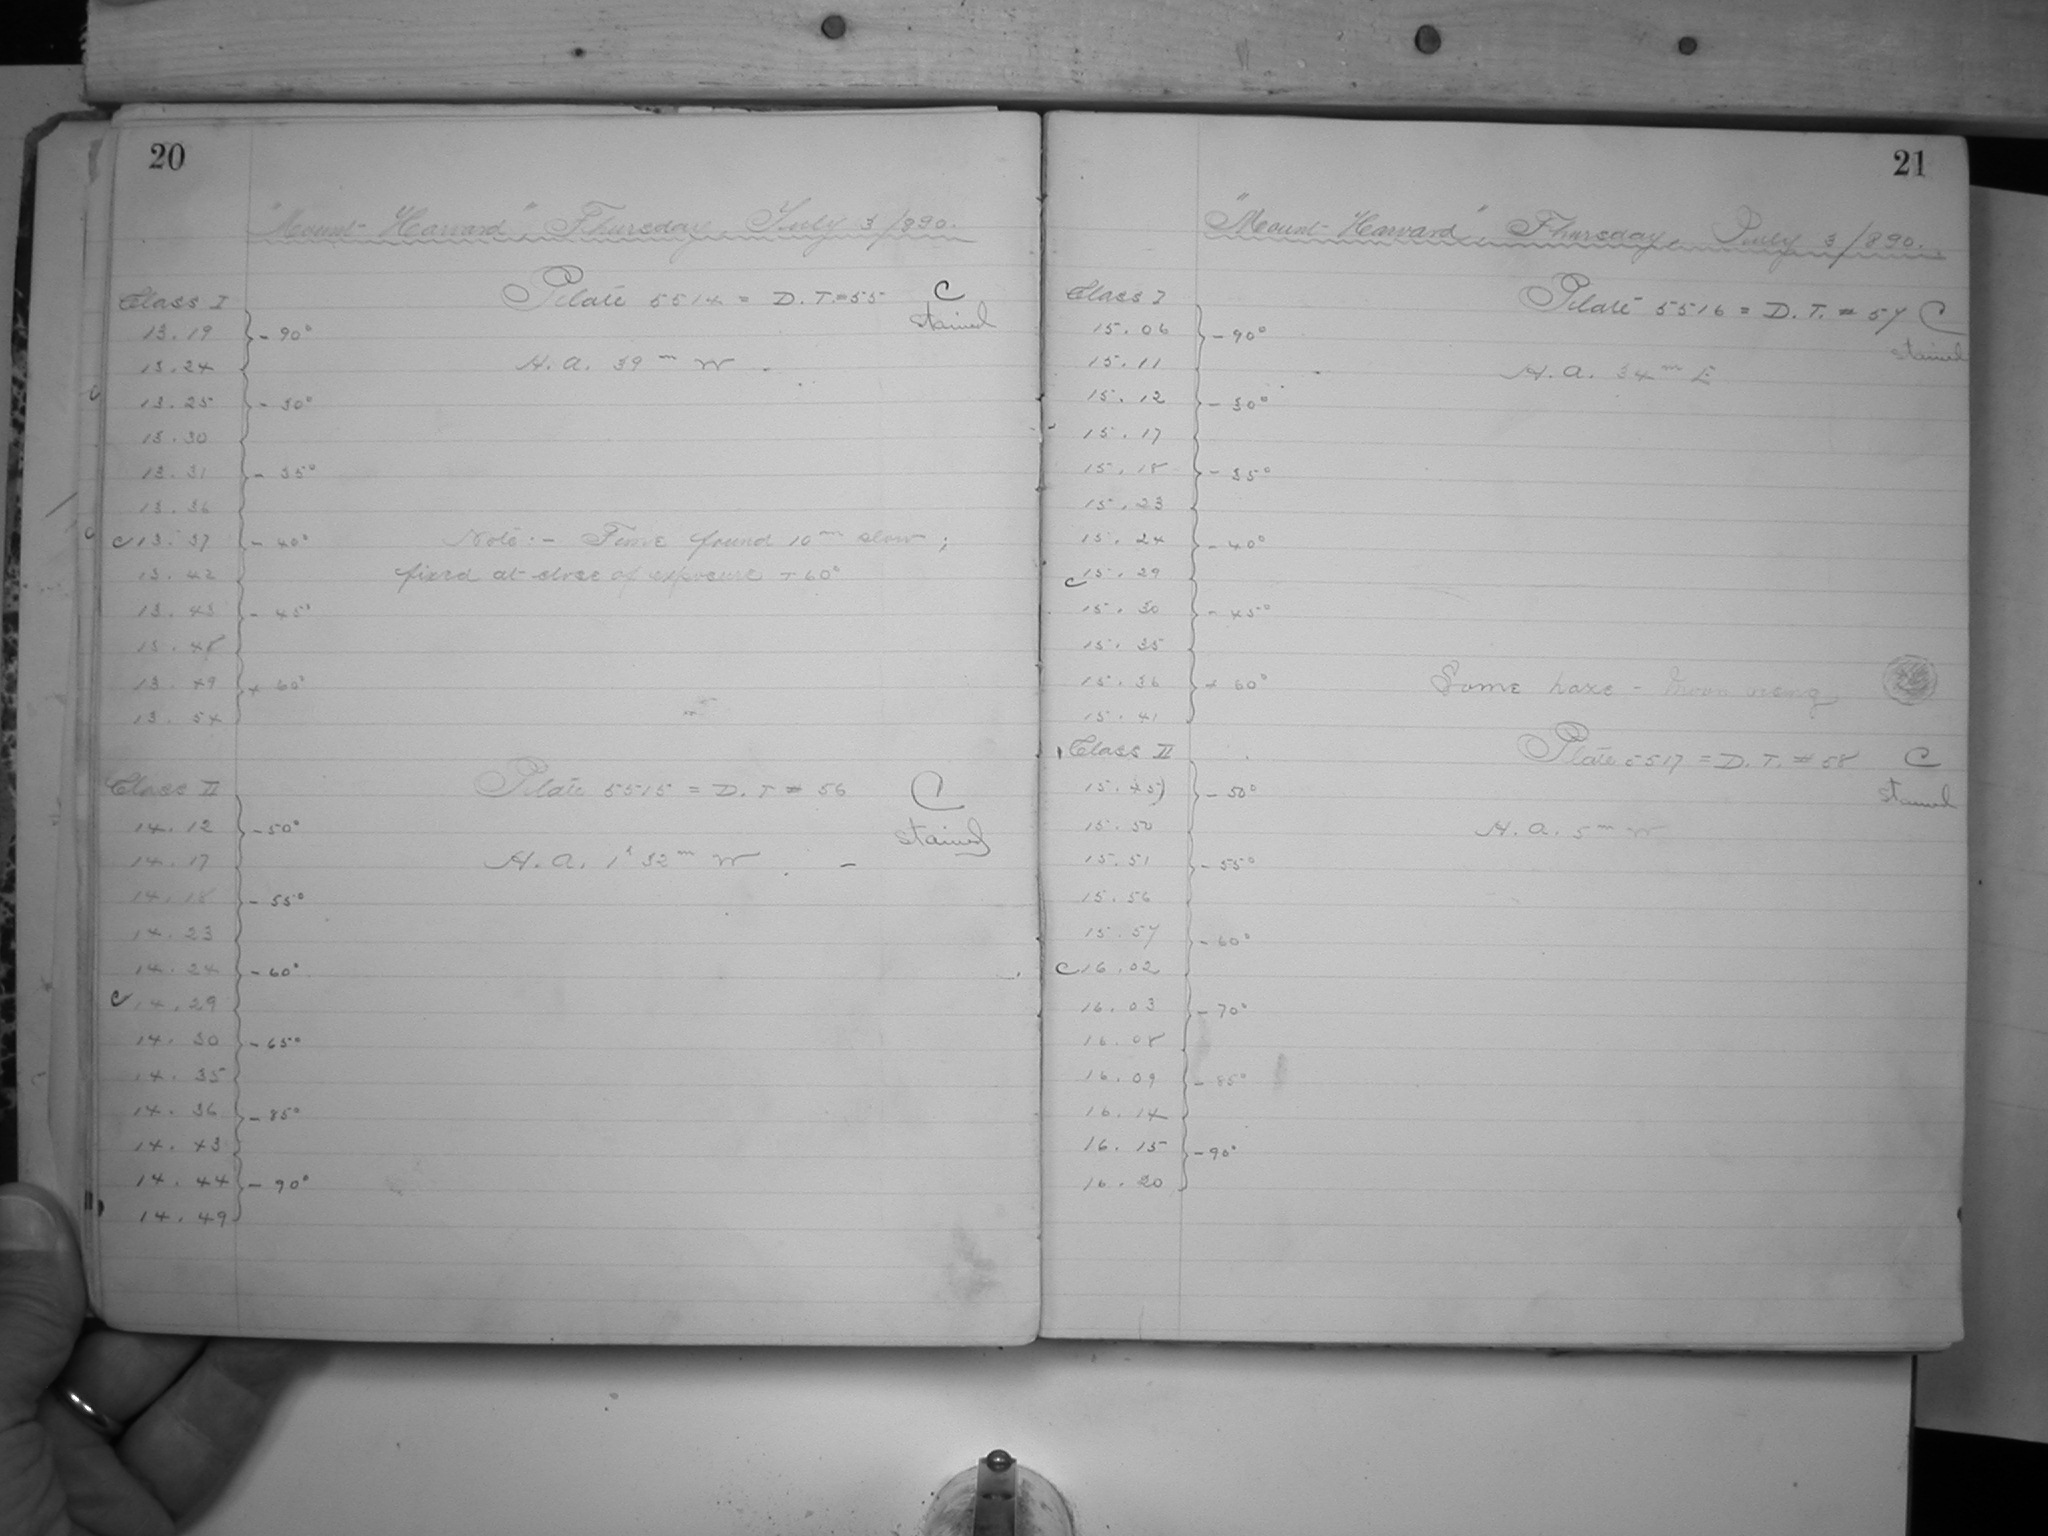 20
"Mount Harvard", Thursday, July 3/890.
Class I Plate 5514 = D.T.=55 C
stained
13.19 - 90°
13.24 H.A. 39m W
13.25 - 30°
13.30
13.31 - 35°
13.36
c 13.37 - 40° Note:- Time found 10m slow;
13.42 fixed at close of exposure +60°
13.43 - 45°
13.48
13.49 + 60°
13.54
Class II Plate 5515 = D.T # 56 C
stained
14.12 - 50°
14.17 H.A. 1h 32m W -
14.18 - 55°
14.23
14.24 - 60°
c 14.29
14.30 - 65°
14.35
14.36 - 85°
14.43
14.44 - 90°
14.49
21
"Mount Harvard", Thursday, July 3/890.
Class I Plate 5516 = D.T. # 57 C
stained
15.06 - 90°
15.11 H.A. 34m E
15.12 - 30°
15.17
15.18 - 35°
15.23
15.24 - 40°
c 15.29
15.30 - 45°
15.35
15.36 + 60° Some haze - Moon rising
15.41
Class II Plate 5517 = D.T. # 58 C
stained
15.45 - 50°
15.50 H.A. 5m W
15.51 - 55°
15.56
15.57 - 60°
c 16.02
16.03 - 70°
16.08
16.09 - 85°
16.14
16.15 - 90°
16.20